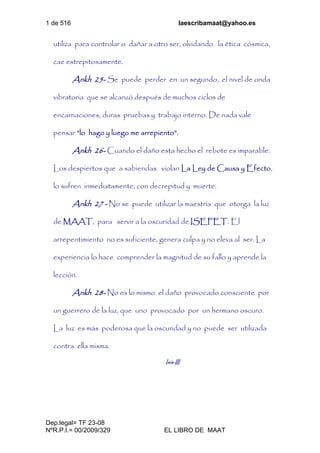 1 de 516 laescribamaat@yahoo.es
utiliza para controlar o dañar a otro ser, olvidando la ética cósmica,
cae estrepitosamente.
Ankh 25- Se puede perder en un segundo, el nivel de onda
vibratoria que se alcanzó después de muchos ciclos de
encarnaciones, duras pruebas y trabajo interno. De nada vale
pensar "lo hago y luego me arrepiento".
Ankh 26- Cuando el daño esta hecho el rebote es imparable.
Los despiertos que a sabiendas violan La Ley de Causa y Efecto,
lo sufren inmediatamente, con decrepitud y muerte.
Ankh 27- No se puede utilizar la maestría que otorga la luz
de MAAT, para servir a la oscuridad de ISEFET. El
arrepentimiento no es suficiente, genera culpa y no eleva al ser. La
experiencia lo hace comprender la magnitud de su fallo y aprende la
lección.
Ankh 28- No es lo mismo el daño provocado consciente por
un guerrero de la luz, que uno provocado por un hermano oscuro.
La luz es más poderosa que la oscuridad y no puede ser utilizada
contra ella misma.
Dep.legal= TF 23-08
NºR.P.I.= 00/2009/329 EL LIBRO DE MAAT